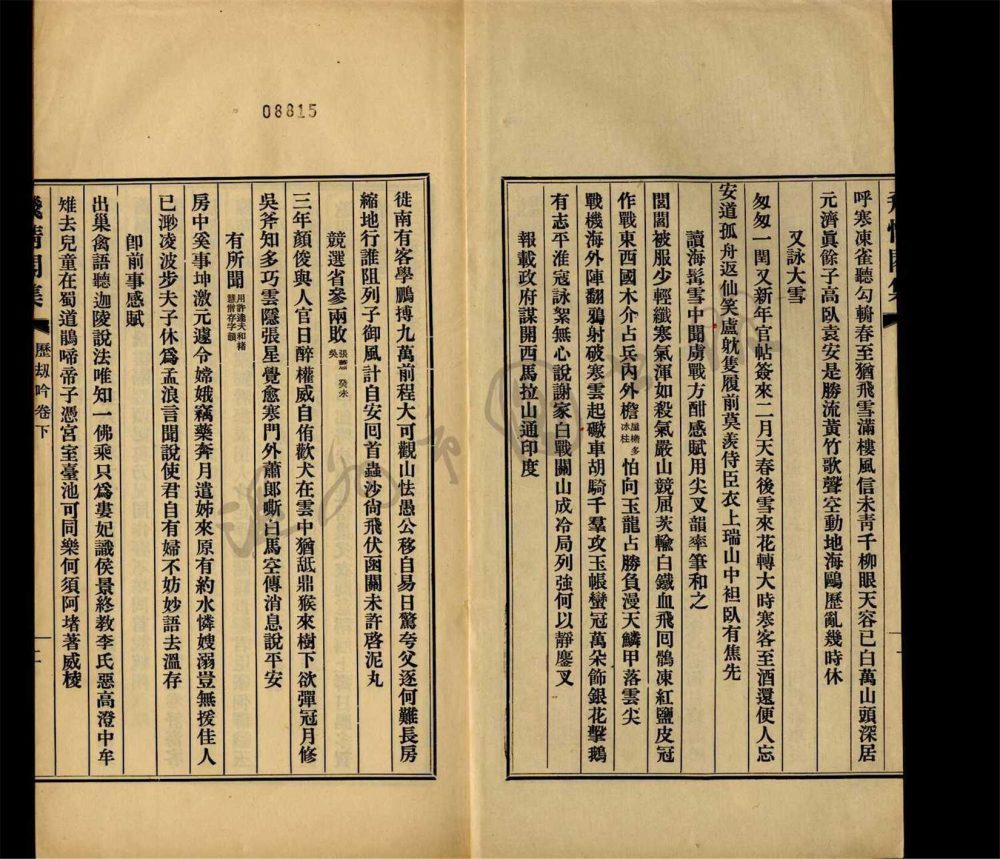 呼寒凍雀聽勾輈春至猶飛雪滿樓風信未靑千柳眼天容已白萬山頭深居
元濟眞餘子高臥袁安是勝流黃竹歌聲空動地海鷗歷亂幾時休
又詠大雪
匆匆一閏又新年官帖簽來二月天春後雪來花轉大時寒客至酒還便人忘
安道孤舟返仙笑盧躭隻履前莫羨侍臣衣上瑞山中袒臥有焦先
讀海髯雪中聞虜戰方酣感賦用尖叉韻率筆和之
閭闔被服少輕纖寒氣渾如殺氣嚴山競屈茨輸白鐵血飛回鶻凍紅鹽皮冠
作戰東西國木介占兵內外檐屋檐多冰柱怕向玉龍占勝負漫天鱗甲落雲尖
戰機海外陣翻鴉射破寒雲起礮車胡騎千羣攻玉帳蠻冠萬朵飾銀花擊鵝
有志平淮寇詠絮無心說謝家白戰關山成冷局列強何以靜鏖叉
報載政府謀開西馬拉山通印度
08815
徙南有客學鵬搏九萬前程大可觀山怯愚公移自易日驚夸父逐何難長房
縮地行誰阻列子御風計自安囘首蟲沙尙飛伏函關未許啓泥丸
競選省參兩敗張蕭吳癸未
三年顏俊與人官日醉權威自侑歡犬在雲中猶舐鼎猴來樹下欲彈冠月修
吳斧知多巧雲隱張星覺愈寒門外蕭郞嘶白馬空傳消息說平安
有所聞用許達夫和楮慧僧存字韻
房中奚事坤激元遽令嫦娥竊藥奔月遣姊來原有約水憐嫂溺豈無援佳人
已渺凌波步夫子休爲孟浪言聞說使君自有婦不妨妙語去溫存
卽前事感賦
出巢禽語聽迦陵說法唯知一佛乘只爲婁妃識侯景終教李氏惡高澄中牟
雉去兒童在蜀道鵑啼帝子憑宮室臺池可同樂何須阿堵著威棱
歷刼吟卷下